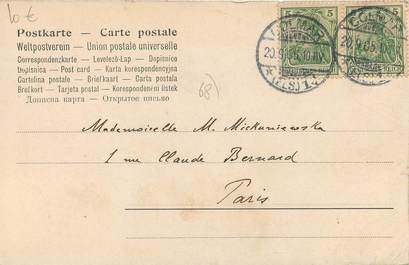 10 €
Postkarte — Carte postale
Weltpostverein — Union postale universelle
Correspondenzkarte — Levelező-Lap — Dopisnice
Dopisnica — Post card — Karta korespondencyjna
Cartolina postale — Briefkaart — Carta postala
Brefkort — Tarjeta postal — Korespondenční lístek
Дописна карта — Открытое письмо
COLMAR
5
5
COLMAR
20.9.05.
20.9.05.
(ELS)
68)
Mademoiselle M. Mickaniewska
1 rue Claude Bernard
Paris